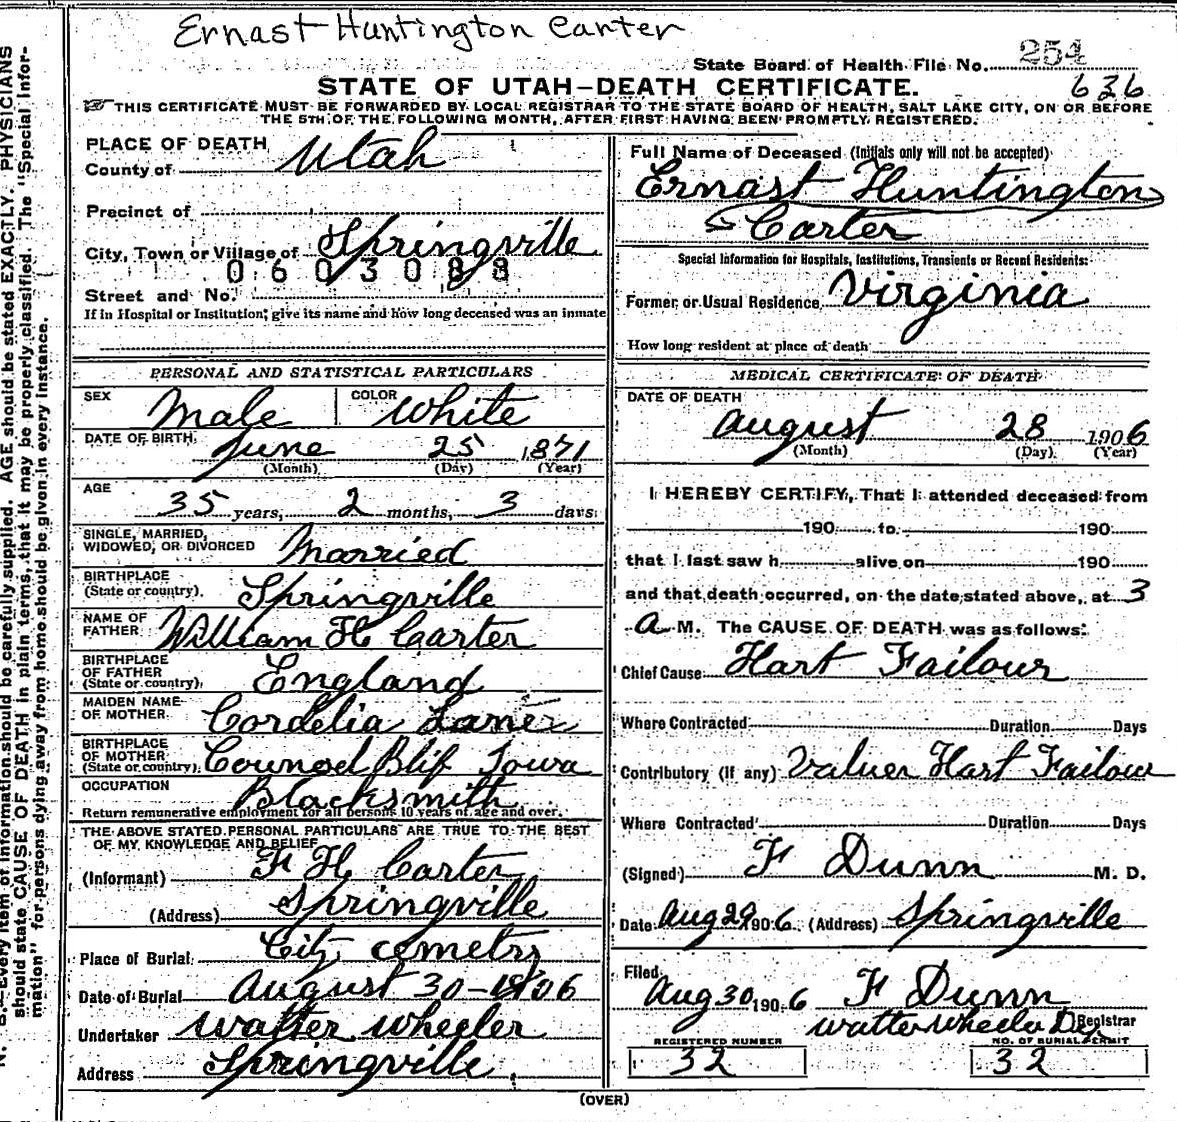 Ernast Huntington Carter
State Board of Health File No. 254
STATE OF UTAH—DEATH CERTIFICATE. 626
THIS CERTIFICATE MUST BE FORWARDED BY LOCAL REGISTRAR TO THE STATE BOARD OF HEALTH, SALT LAKE CITY, ON OR BEFORE
THE 5TH OF THE FOLLOWING MONTH, AFTER FIRST HAVING BEEN PROMPTLY REGISTERED.
PLACE OF DEATH
County of Utah
Precinct of
City, Town or Village of Springville
0603088
Street and No.
If in Hospital or Institution, give its name and how long deceased was an inmate
PERSONAL AND STATISTICAL PARTICULARS
SEX Male COLOR White
DATE OF BIRTH June 25 1871
(Month) (Day) (Year)
AGE
35 years, 2 months, 3 days
SINGLE, MARRIED,
WIDOWED, OR DIVORCED Married
BIRTHPLACE
(State or country). Springville
NAME OF
FATHER William H Carter
BIRTHPLACE
OF FATHER
(State or country). England
MAIDEN NAME
OF MOTHER Cordelia
BIRTHPLACE
OF MOTHER
(State or country). Counsel Blif Iowa
OCCUPATION Blacksmith
Return remunerative employment for all persons 10 years of age and over.
THE ABOVE STATED PERSONAL PARTICULARS ARE TRUE TO THE BEST
OF MY KNOWLEDGE AND BELIEF
(Informant) F H Carter
(Address) Springville
Place of Burial City cemetry
Date of Burial August 30-1906
Undertaker Walter Wheeler
Address Springville
Full Name of Deceased (Initials only will not be accepted)
Ernast Huntington
Carter
Special Information for Hospitals, Institutions, Transients or Recent Residents:
Former or Usual Residence Virginia
How long resident at place of death
MEDICAL CERTIFICATE OF DEATH
DATE OF DEATH
August 28 1906
(Month) (Day) (Year)
I HEREBY CERTIFY, That I attended deceased from
190 to 190
that I last saw h alive on 190
and that death occurred, on the date stated above, at 3
A M. The CAUSE OF DEATH was as follows:
Chief Cause Hart Failour
Where Contracted Duration Days
Contributory (if any) Valuer Hart Failour
Where Contracted Duration Days
(Signed) F Dunn M. D.
Date Aug 29 1906 (Address) Springville
Filed
Aug 30, 1906 F Dunn
Walter Wheeler Registrar
REGISTERED NUMBER NO. OF BURIAL PERMIT
32 32
(OVER)
N. B.—Every item of information should be carefully supplied. AGE should be stated EXACTLY. PHYSICIANS
should state CAUSE OF DEATH in plain terms, that it may be properly classified. The "Special Infor-
mation" for persons dying away from home should be given in every instance.